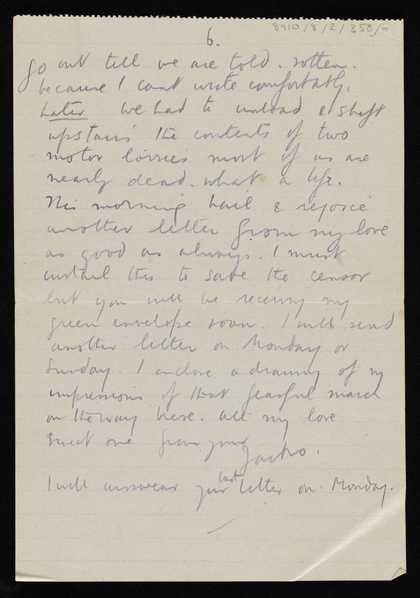 8910/8/2/358/-
6.
go out till we are told. rotten.
because I cant write comfortably.
Later We had to unload & shift
upstairs the contents of two
motor lorries most of us are
nearly dead. what a life.
This morning hail & rejoice
another letter from my love
as good as always. I must
curtail this to save the censor
but you will be receiving my
green envelope soon. I will send
another letter on Monday or
Sunday. I enclose a drawing of my
impressions of that fearful march
on the way here. All my love
sweet one from your
I will answear your last letter on Monday.